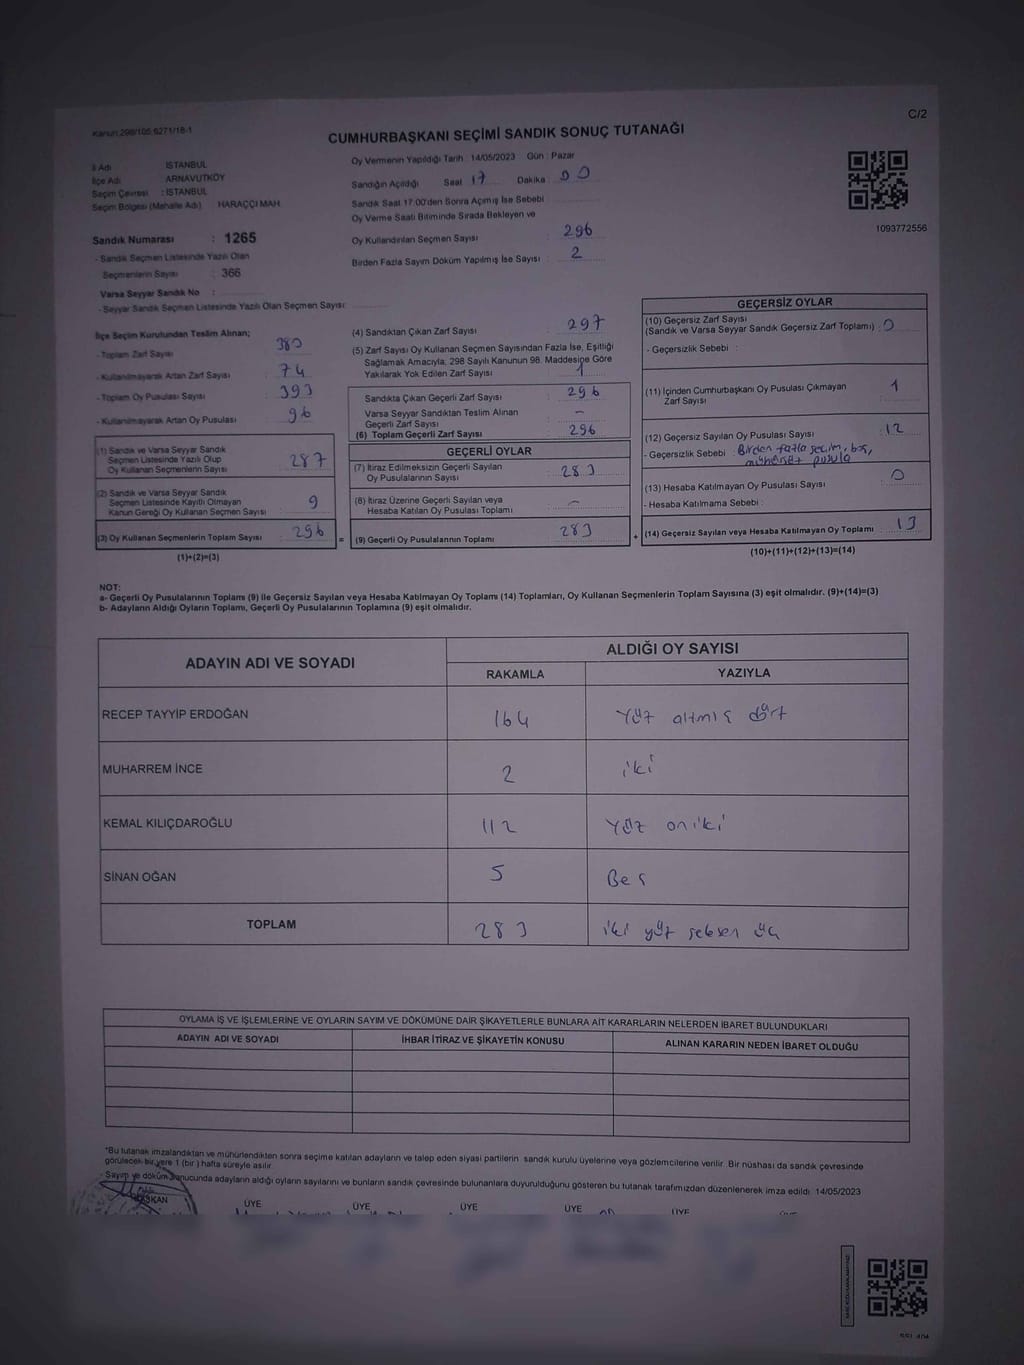 Kanun:298/105 6271/18-1
C/2
CUMHURBAŞKANI SEÇİMİ SANDIK SONUÇ TUTANAĞI
İl Adı : İSTANBUL
İlçe Adı : ARNAVUTKÖY
Seçim Çevresi : İSTANBUL
Seçim Bölgesi (Mahalle Adı) : HARAÇÇI MAH.
Sandık Numarası : 1265
- Sandık Seçmen Listesinde Yazılı Olan
Seçmenlerin Sayısı : 366
Varsa Seyyar Sandık No :
- Seyyar Sandık Seçmen Listesinde Yazılı Olan Seçmen Sayısı:
Oy Vermenin Yapıldığı Tarih : 14/05/2023 Gün : Pazar
Sandığın Açıldığı Saat : 17 Dakika : 00
Sandık Saat 17:00'den Sonra Açılmış İse Sebebi
Oy Verme Saati Bitiminde Sırada Bekleyen ve
Oy Kullandırılan Seçmen Sayısı : 296
Birden Fazla Sayım Döküm Yapılmış İse Sayısı : 2
1093772556
İlçe Seçim Kurulundan Teslim Alınan;
- Toplam Zarf Sayısı : 380
- Kullanılmayarak Artan Zarf Sayısı : 74
- Toplam Oy Pusulası Sayısı : 393
- Kullanılmayarak Artan Oy Pusulası : 96
(1) Sandık ve Varsa Seyyar Sandık
Seçmen Listesinde Yazılı Olup
Oy Kullanan Seçmenlerin Sayısı : 287
(2) Sandık ve Varsa Seyyar Sandık
Seçmen Listesinde Kayıtlı Olmayan
Kanun Gereği Oy Kullanan Seçmen Sayısı : 9
(3) Oy Kullanan Seçmenlerin Toplam Sayısı : 296
(1)+(2)=(3)
(4) Sandıktan Çıkan Zarf Sayısı : 297
(5) Zarf Sayısı Oy Kullanan Seçmen Sayısından Fazla İse, Eşitliği
Sağlamak Amacıyla, 298 Sayılı Kanunun 98. Maddesine Göre
Yakılarak Yok Edilen Zarf Sayısı : 1
Sandıkta Çıkan Geçerli Zarf Sayısı : 296
Varsa Seyyar Sandıktan Teslim Alınan
Geçerli Zarf Sayısı : -
(6) Toplam Geçerli Zarf Sayısı : 296
GEÇERLİ OYLAR
(7) İtiraz Edilmeksizin Geçerli Sayılan
Oy Pusulalarının Sayısı : 283
(8) İtiraz Üzerine Geçerli Sayılan veya
Hesaba Katılan Oy Pusulası Toplamı : -
= (9) Geçerli Oy Pusulalarının Toplamı : 283
GEÇERSİZ OYLAR
(10) Geçersiz Zarf Sayısı
(Sandık ve Varsa Seyyar Sandık Geçersiz Zarf Toplamı) : 0
- Geçersizlik Sebebi :
(11) İçinden Cumhurbaşkanı Oy Pusulası Çıkmayan
Zarf Sayısı : 1
(12) Geçersiz Sayılan Oy Pusulası Sayısı : 12
- Geçersizlik Sebebi : Birden fazla seçim, boş,
mühürsüz pusula
(13) Hesaba Katılmayan Oy Pusulası Sayısı : 0
- Hesaba Katılmama Sebebi :
+ (14) Geçersiz Sayılan veya Hesaba Katılmayan Oy Toplamı : 13
(10)+(11)+(12)+(13)=(14)
NOT:
a- Geçerli Oy Pusulalarının Toplamı (9) ile Geçersiz Sayılan veya Hesaba Katılmayan Oy Toplamı (14) Toplamları, Oy Kullanan Seçmenlerin Toplam Sayısına (3) eşit olmalıdır. (9)+(14)=(3)
b- Adayların Aldığı Oyların Toplamı, Geçerli Oy Pusulalarının Toplamına (9) eşit olmalıdır.
ADAYIN ADI VE SOYADI
ALDIĞI OY SAYISI
RAKAMLA YAZIYLA
RECEP TAYYİP ERDOĞAN 164 Yüz altmış dört
MUHARREM İNCE 2 iki
KEMAL KILIÇDAROĞLU 112 Yüz oniki
SİNAN OĞAN 5 Beş
TOPLAM 283 iki yüz seksen üç
OYLAMA İŞ VE İŞLEMLERİNE VE OYLARIN SAYIM VE DÖKÜMÜNE DAİR ŞİKAYETLERLE BUNLARA AİT KARARLARIN NELERDEN İBARET BULUNDUKLARI
ADAYIN ADI VE SOYADI İHBAR İTİRAZ VE ŞİKAYETİN KONUSU ALINAN KARARIN NEDEN İBARET OLDUĞU
*Bu tutanak imzalandıktan ve mühürlendikten sonra seçime katılan adayların ve talep eden siyasi partilerin sandık kurulu üyelerine veya gözlemcilerine verilir. Bir nüshası da sandık çevresinde
görülecek bir yere 1 (bir) hafta süreyle asılır.
Sayım ve döküm sonucunda adayların aldığı oyların sayılarını ve bunların sandık çevresinde bulunanlara duyurulduğunu gösteren bu tutanak tarafımızdan düzenlenerek imza edildi. 14/05/2023
BAŞKAN ÜYE ÜYE ÜYE ÜYE ÜYE